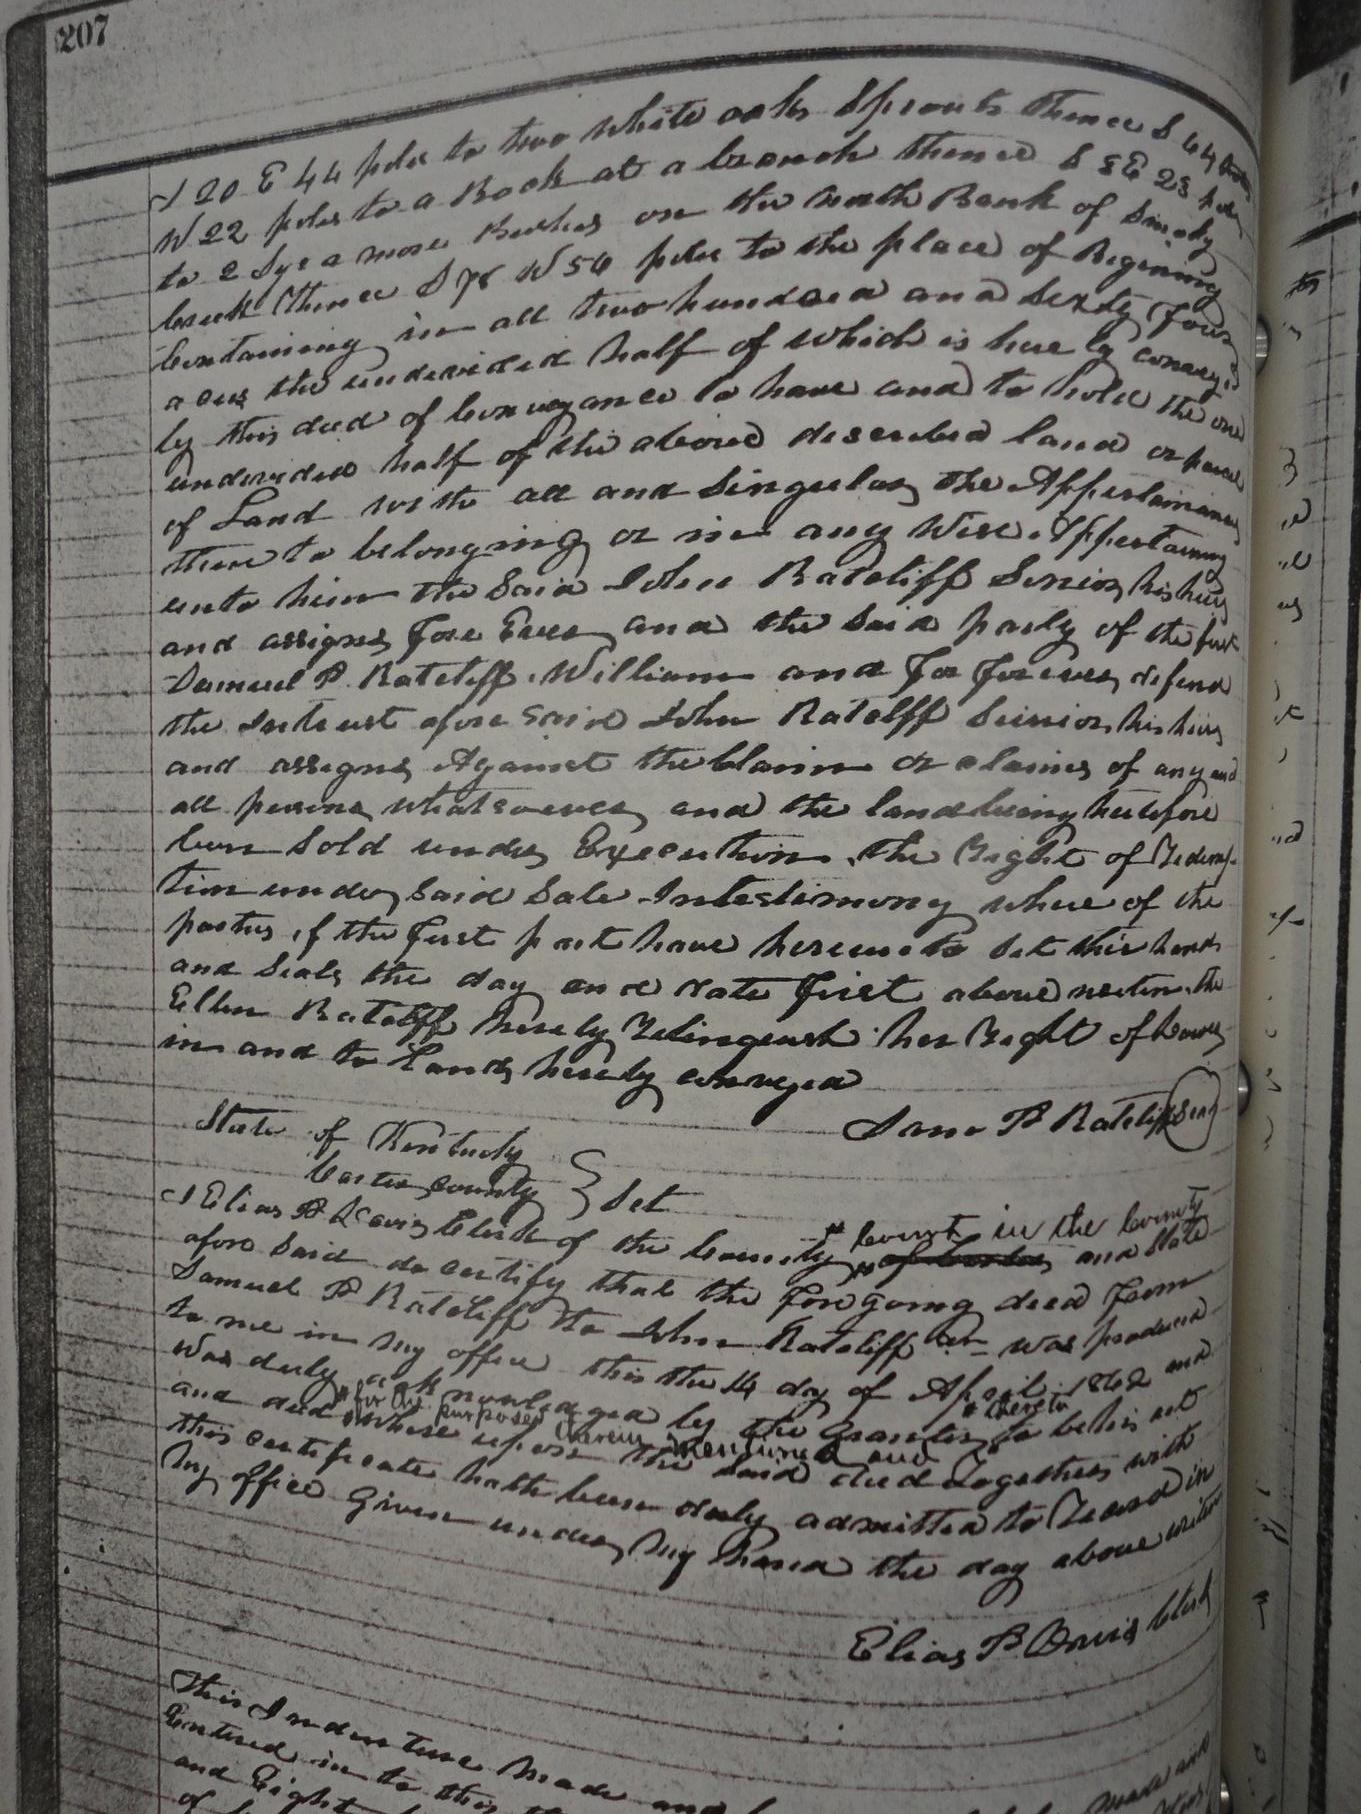 207
S 20 E 44 poles to two white oaks Sprouts thence S 64
W 22 poles to a Rock at a branch thence S 8 E 28 poles
to 2 Sycamore Bushes on the north Bank of Smoky
Creek thence S 78 W 56 poles to the place of Begining
Containing in all two hundred and Sixty Four
acres the undivided half of which is here by conveyed
by this deed of Conveyance to have and to hold the one
undivided half of the above described land or parcel
of Land with all and Singular the Appertainances
there to belonging or in any Wise Appertaining
unto him the Said John Ratcliff Senior his heirs
and assigns Fore Ever and the Said party of the first
Samuel P. Ratcliff William and for forever defend
the Intrust afore Said John Ratclff Senior his heirs
and assigns Against the Claim or claims of any and
all persons whatsoever and the land being heretofore
been Sold under Execution the Right of Redemp-
tion under Said Sale Intestimony where of the
parties of the First part have hereunto Set their hands
and Seals the day and date First above the
Ellen Ratclff hereby Relinquish her Right of Dower
in and to Lands hereby conveyed
Sam P Ratcliff Seal
State of Kentucky
Carter County } Set
I Elias P Davis Clerk of the County Court in the County
of Carter and State
afore Said do certify that the Foregoing deed From
Samuel P Ratcliff to John Ratcliff Sr was produced
to me in my office this the 14 day of April 1862 and
was duly acknowledged by the Grantor thereto to be his act
and deed for the purposes therein mentioned and
whereupon the Said deed Together with
this certificate hath been duly admitted to Record in
My office Given under My hand the day above writen
Elias P. Davis Clerk
This Indenture Made and
Entered in to this
and Eight
of